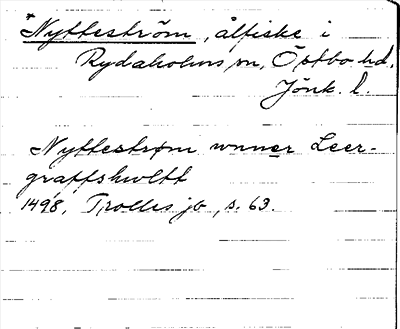 *Nytteström, ålfiske i
Rydaholms sn, Östbo hd.
Jönk. l.
Nyttestrøm wnner Leer-
graffshwltt
1498, Trolles jb, s. 63.